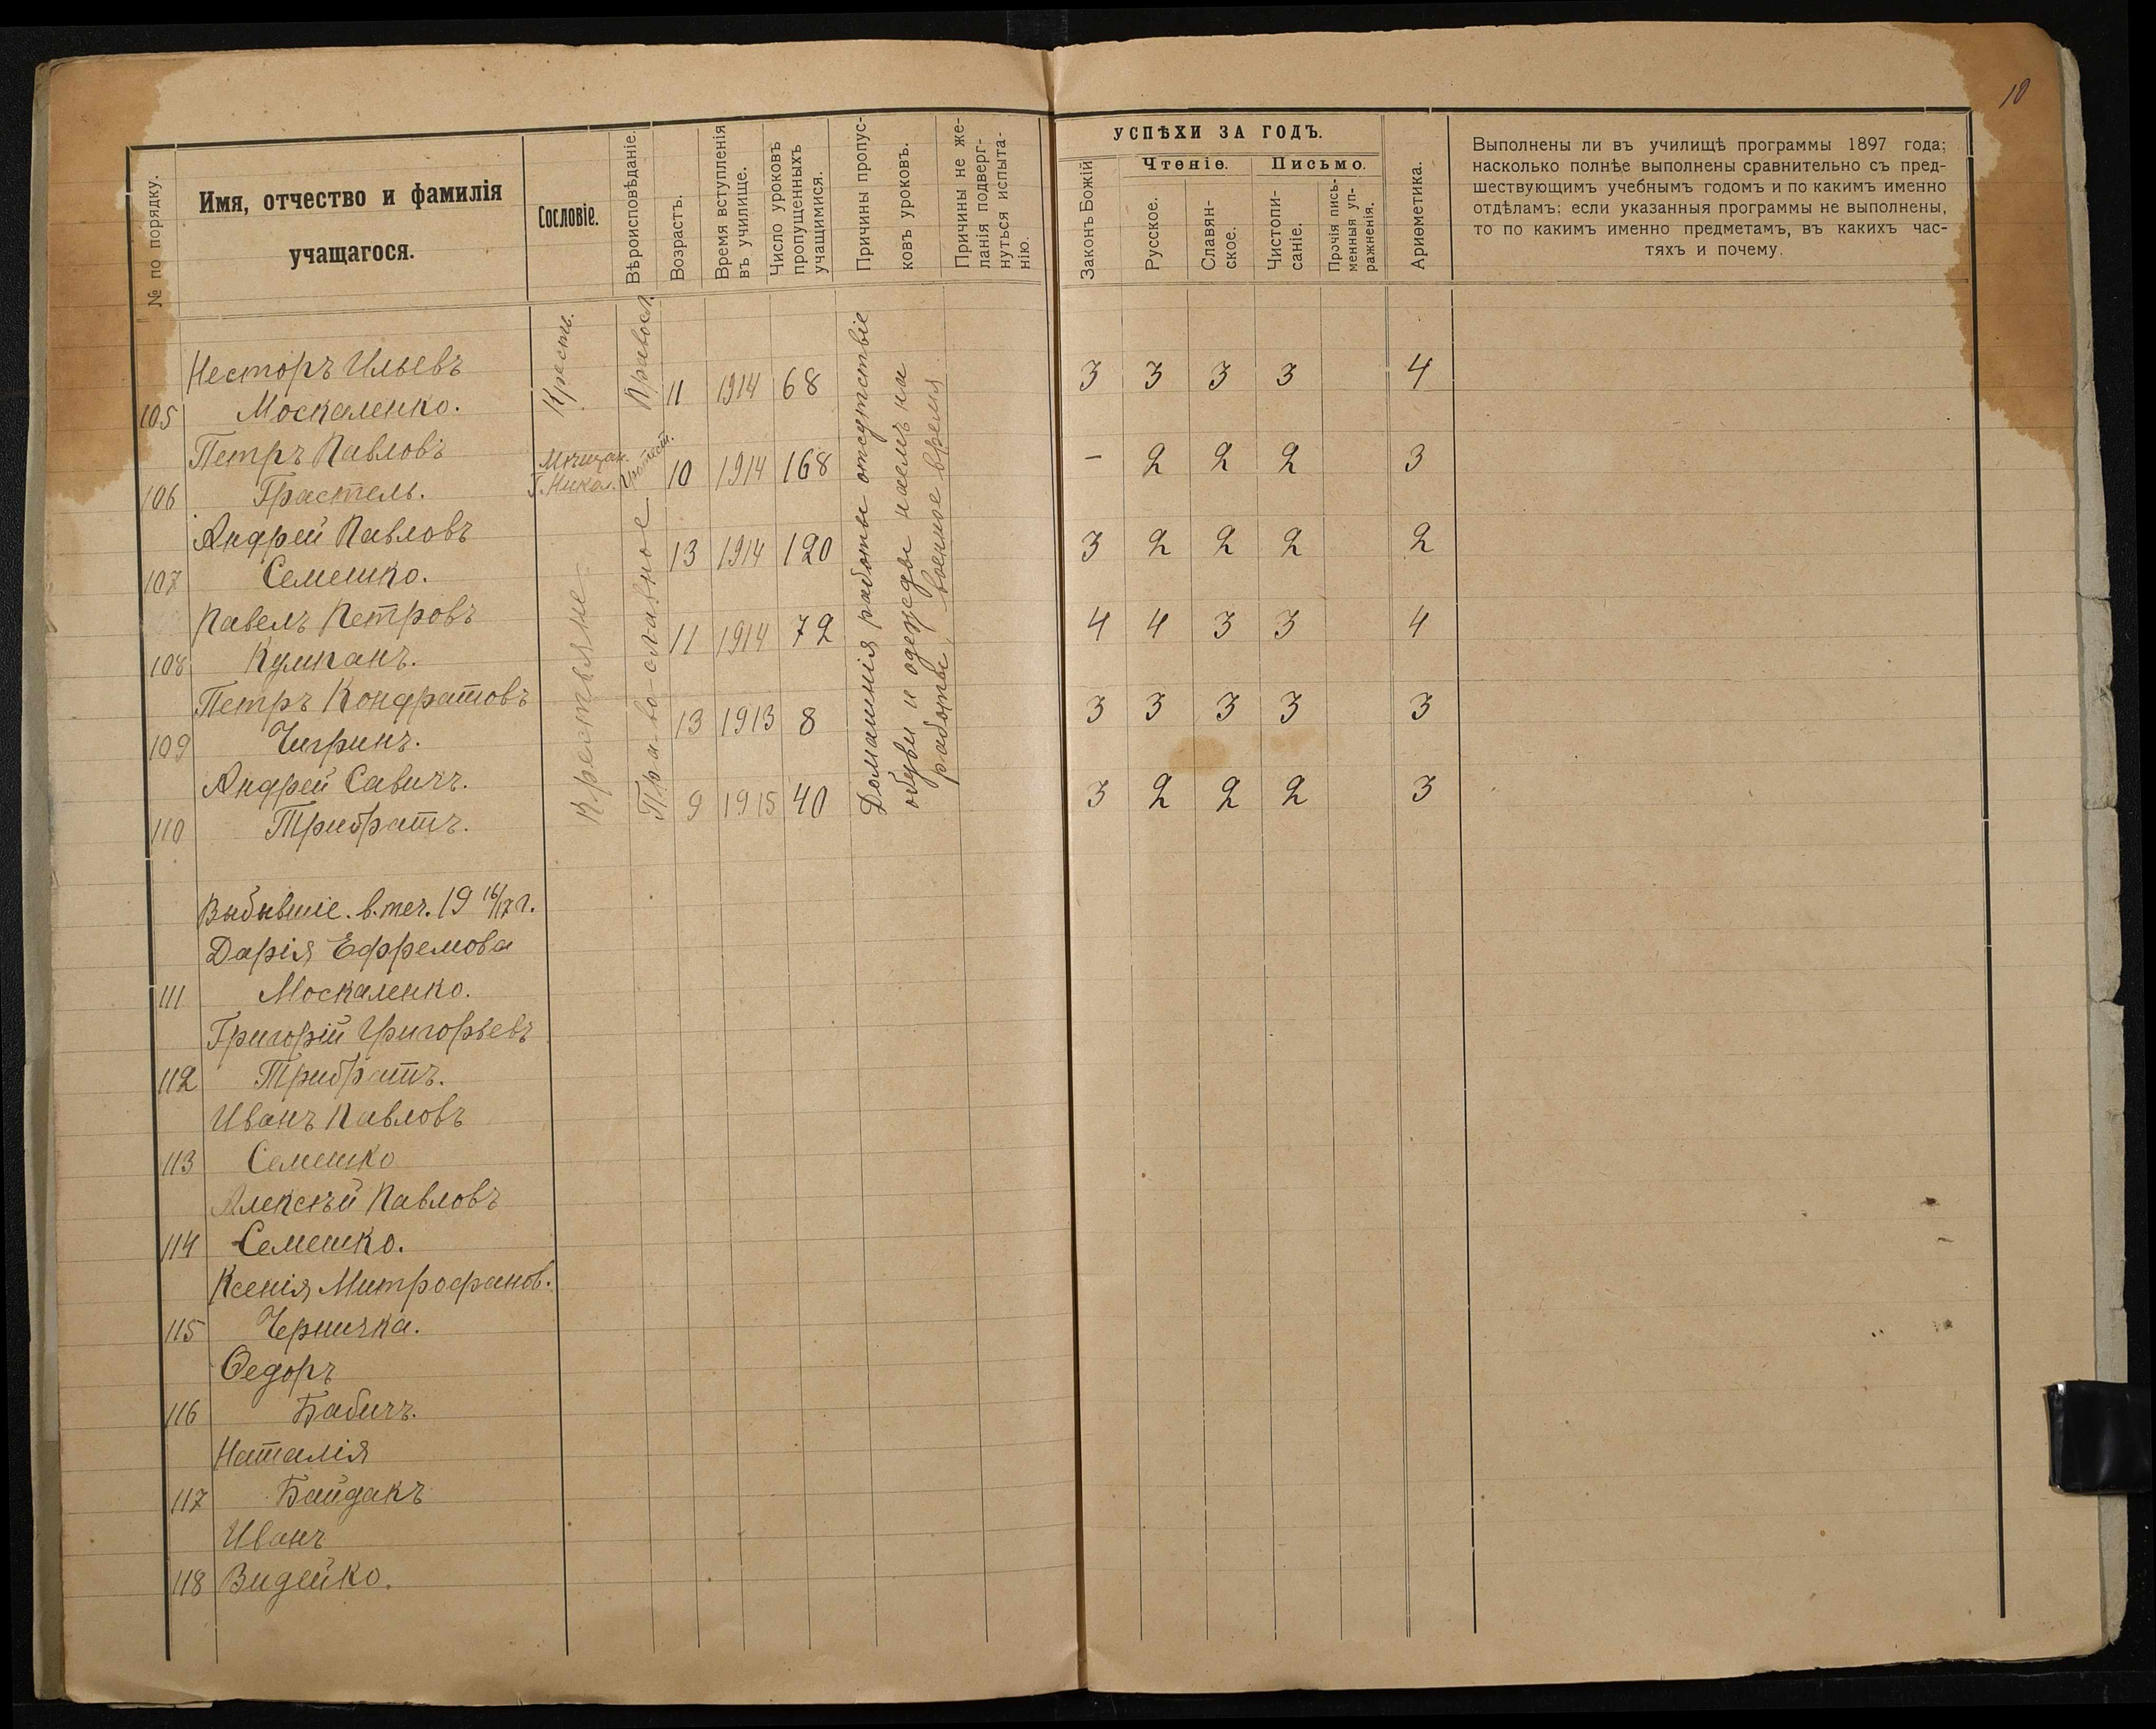 10
№ по порядку.
Имя, отчество и фамилія
учащагося.
Сословіе.
Вѣроисповѣданіе.
Возрастъ.
Время вступленія
въ училище.
Число уроковъ
пропущенныхъ
учащимися.
Причины пропус-
ковъ уроковъ.
Причины не же-
ланія подверг-
нуться испыта-
нію.
УСПѢХИ ЗА ГОДЪ.
Законъ Божій
Чтеніе.
Русское.
Славян-
ское.
Письмо.
Чистопи-
саніе.
Прочія пись-
менныя уп-
ражненія.
Ариѳметика.
Выполнены ли въ училищѣ программы 1897 года;
насколько полнѣе выполнены сравнительно съ пред-
шествующимъ учебнымъ годомъ и по какимъ именно
отдѣламъ; если указанныя программы не выполнены,
то по какимъ именно предметамъ, въ какихъ час-
тяхъ и почему.
Несторъ Ильевъ
105 Москаленко. Крест. Правосл. 11 1914 68 3 3 3 3 4
Петръ Павловъ
106 Грастель. Мѣщан. Г. Никол. Протест. 10 1914 168 – 2 2 2 3
Андрей Павловъ
107 Семешко. 13 1914 120 3 2 2 2 2
Павелъ Петровъ
108 Кулпанъ. 11 1914 72 4 4 3 3 4
Петръ Кондратовъ
109 Чигринъ. 13 1913 8 3 3 3 3 3
Андрей Савичъ.
110 Трибратъ. 9 1915 40 3 2 2 2 3
Крестьяне
Православное
Домашнія работы отсутствіе
обуви и одежды наемъ на
работы, военное время
Выбывшіе. в. теч. 19 16/17 г.
Дарія Ефремова
111 Москаленко.
Григорій Григорьевъ
112 Трибратъ.
Иванъ Павловъ
113 Семешко
Алексѣй Павловъ
114 Семешко.
Ксенія Митрофанов.
115 Черничка.
Ѳедоръ
116 Бабичъ.
Наталія
117 Байдакъ
Иванъ
118 Видейко.